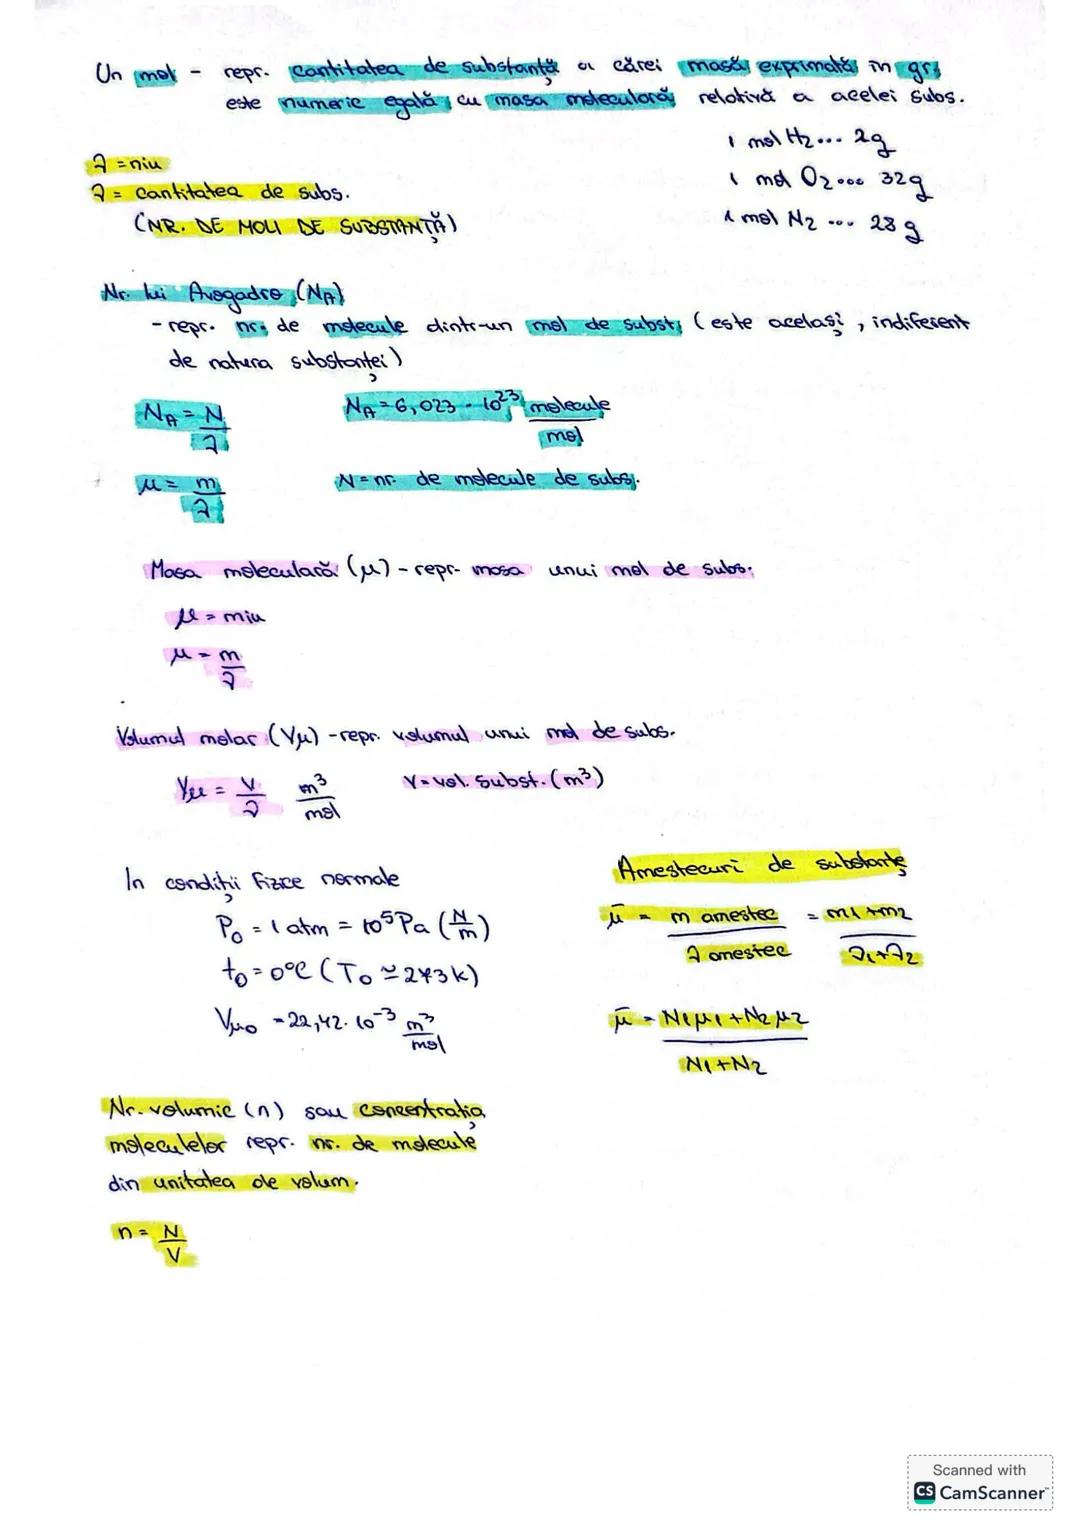 Un mol - repr. cantitatea de substanță a cărei masă exprimată în gr.
este numeric egală cu masa moleculară relativă a acelei subs.
1 mol H2... 2g
1 mol O2... 32g
1 mol N2 ... 28 g
ν = niu
ν = cantitatea de subs.
(NR. DE MOLI DE SUBSTANȚĂ)
Nr. lui Avogadro (NA)
- repr. nr. de molecule dintr-un mol de subst. (este același, indiferent
de natura substanței)
NA = N/ν NA = 6,023 · 10^23 molecule/mol
μ = m/ν N = nr. de molecule de subs.
Masa moleculară (μ) - repr. masa unui mol de subs.
μ = miu
μ = m/ν
Volumul molar (Vμ) - repr. volumul unui mol de subs.
Vμ = V/ν m³/mol V = vol. subst. (m³)
In condiții fizice normale
P0 = 1 atm = 10^5 Pa (N/m)
t0 = 0°C (T0 ≃ 273k)
Vμ0 = 22,42 · 10^-3 m³/mol
Amestecuri de substanțe
μ̄ = m amestec/ν amestec = m1+m2/ν1+ν2
μ̄ = N1μ1 + N2μ2/N1+N2
Nr. volumic (n) sau concentrația
moleculelor repr. nr. de molecule
din unitatea de volum.
n = N/V
Scanned with
CS CamScanner